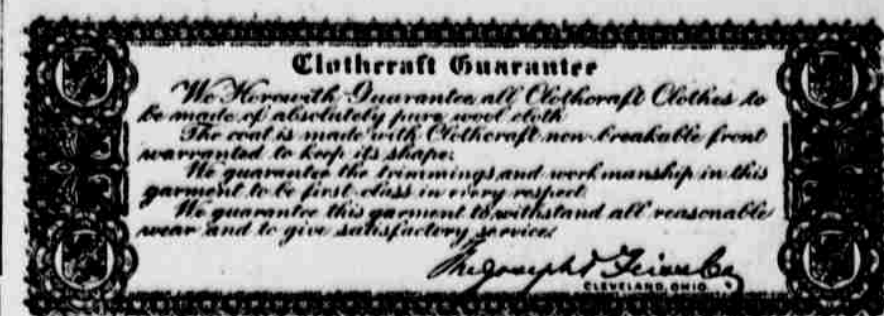 Clothcraft Guarantee
We Herewith Guarantee all Clothcraft Clothes to
be made of absolutely pure wool cloth
The coat is made with Clothcraft non-breakable front
warranted to keep its shape.
We guarantee the trimmings and workmanship in this
garment to be first-class in every respect
We guarantee this garment to withstand all reasonable
wear and to give satisfactory service.
The Joseph & Feiss Co
CLEVELAND, OHIO.